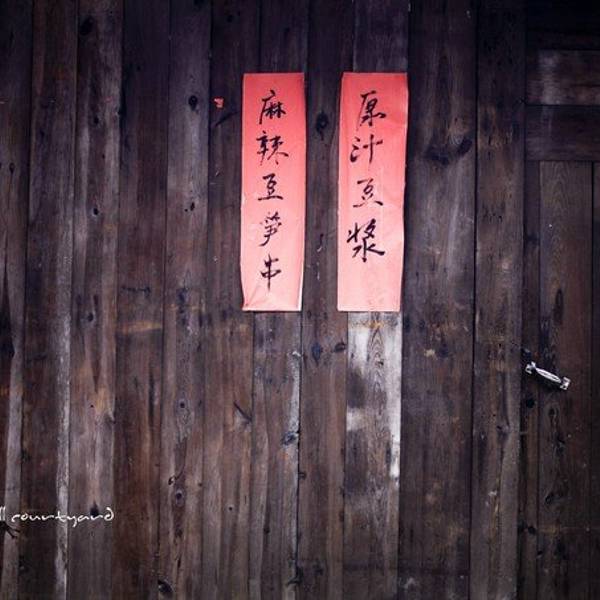 原汁豆浆
麻辣豆笋串
courtyard